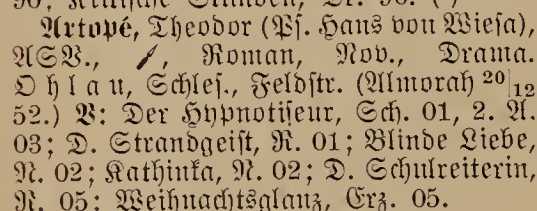 90; Kritische Stimmen, Br. 98. ( )
Artopé, Theodor (Ps. Hans von Wiesa),
ASV., Roman, Nov., Drama.
Ohlau, Schles., Feldstr. (Almorah 20|12
52.) V: Der Hypnotiseur, Sch. 01, 2. A.
03; D. Strandgeist, R. 01; Blinde Liebe,
N. 02; Kathinka, N. 02; D. Schulreiterin,
R. 05; Weihnachtsglanz, Erz. 05.